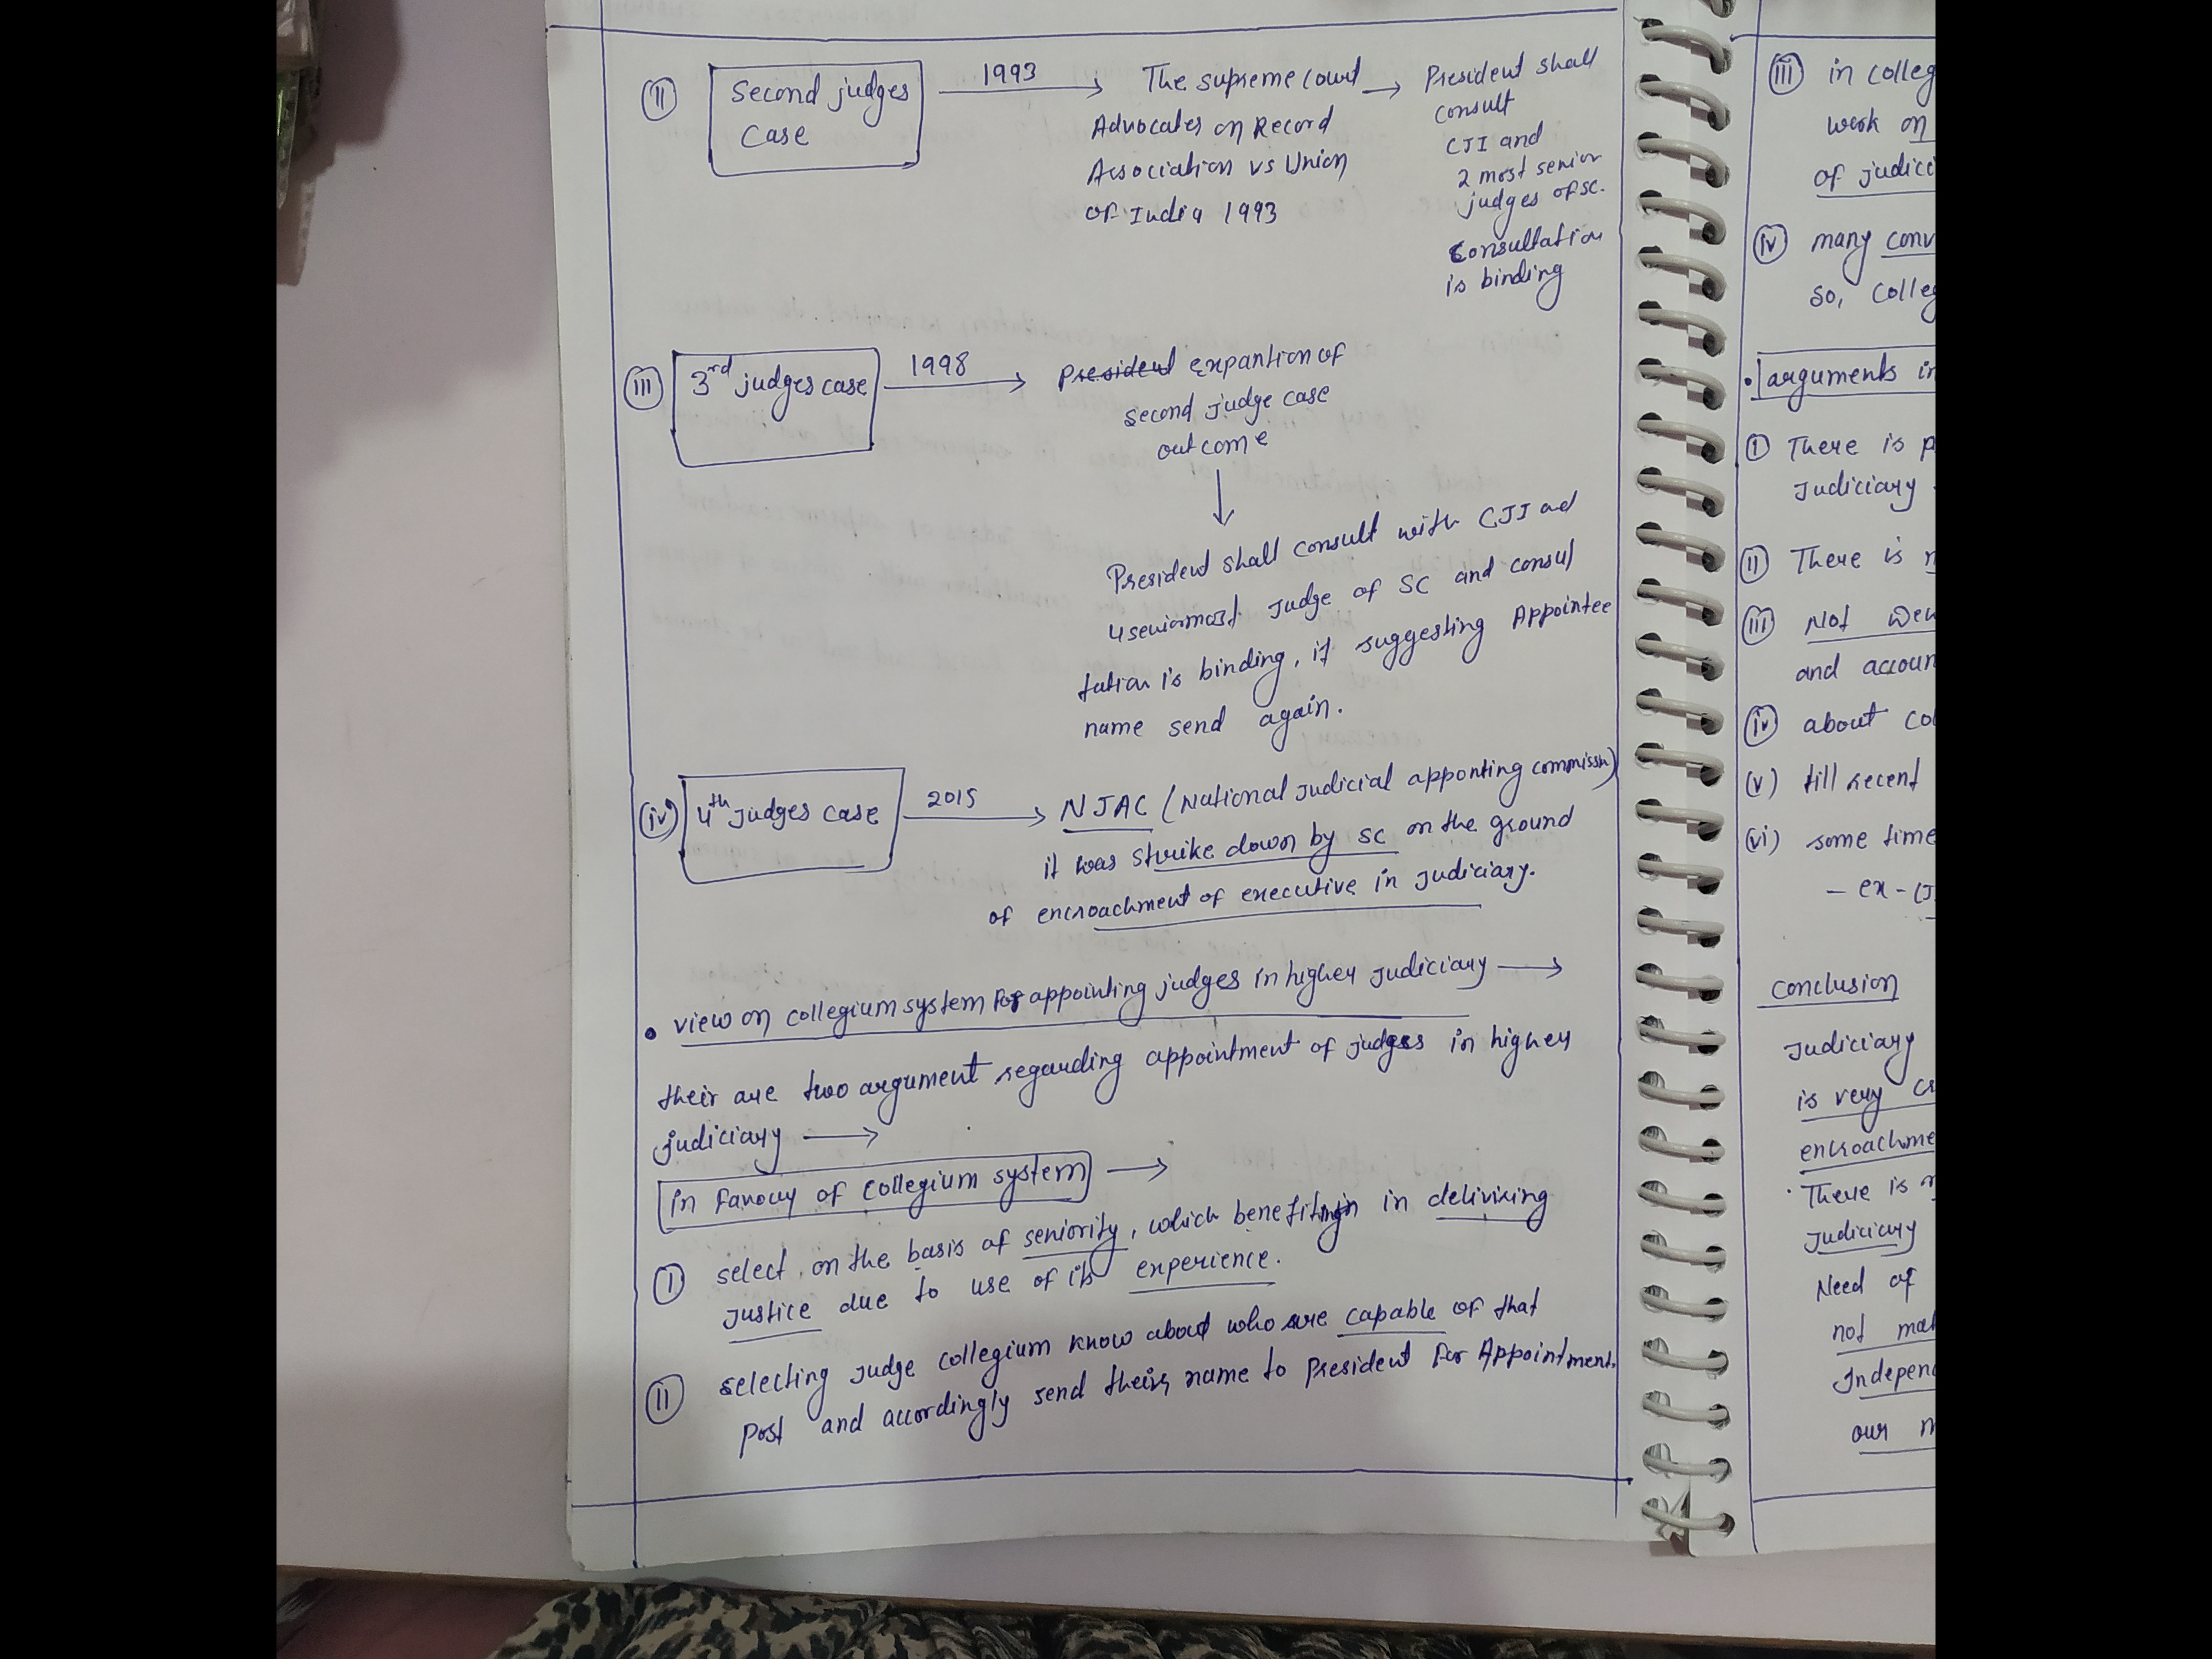 (II) Second judges
Case
1993
The supreme court
Advocates on Record
Association vs Union
of India 1993
President shall
consult
CJI and
2 most senior
judges of SC.
Consultation
is binding
(III) 3rd judges case
1998
President expantion of
second judge case
outcome
President shall consult with CJI ad
4 seniormost judge of SC and consul
tation is binding, if suggesting Appointee
name send again.
(iv) 4th judges case
2015
NJAC (National judicial apponting commissn)
it was strike down by SC on the ground
of encroachment of executive in judiciary.
• view on collegium system for appointing judges in higher judiciary →
their are two argument regarding appointment of judges in higher
judiciary →
in favour of collegium system →
(I) select on the basis of seniority, which benefit in deliviring
justice due to use of its experience.
(II) selecting judge collegium know about who are capable of that
post and accordingly send their name to president for Appointment.
(iii) in colleg
work on
of judici
(iv) many conv
so, colleg
• arguments in
(I) There is p
judiciary
(II) There is n
(iii) Not Dem
and accoun
(iv) about col
(v) till recent
(vi) some time
- ex - CJ
Conclusion
judiciary
is very cr
encroachme
• There is n
judiciary
Need of
not mak
Independ
our m